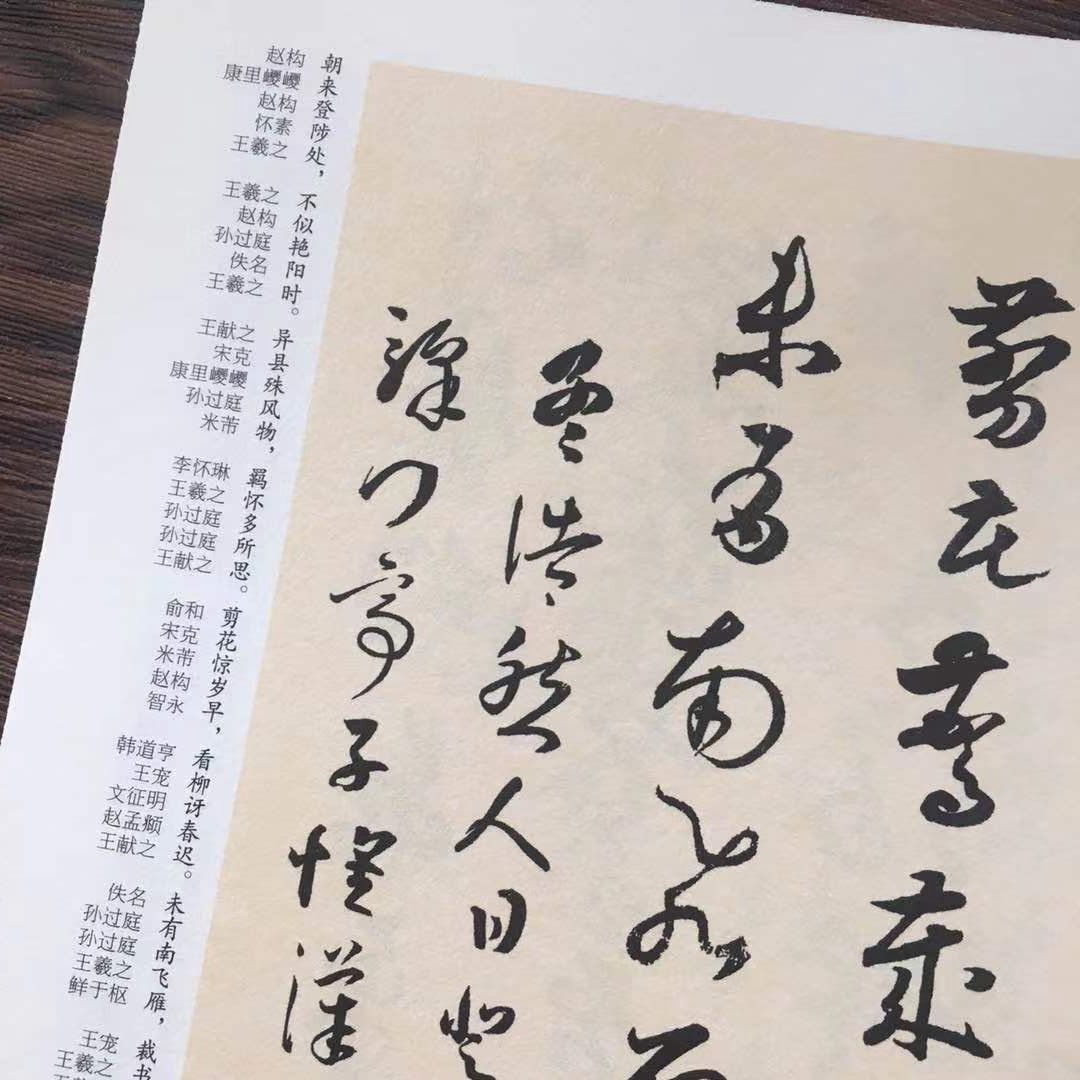 剪花驚歲
未有南飛
孟浩然人日登
驛門亭子懷漢
朝来登陟处，不似艳阳时。异县殊风物，羁怀多所思。剪花惊岁早，看柳讶春迟。未有南飞雁，裁书
赵构
康里巎巎
赵构
怀素
王羲之
王羲之
赵构
孙过庭
佚名
王羲之
王献之
宋克
康里巎巎
孙过庭
米芾
李怀琳
王羲之
孙过庭
孙过庭
王献之
俞和
宋克
米芾
赵构
智永
韩道亨
王宠
文征明
赵孟頫
王献之
佚名
孙过庭
孙过庭
王羲之
鲜于枢
王宠
王羲之